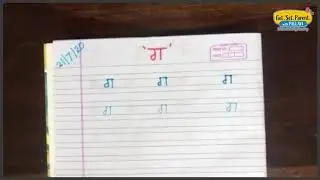 Get. Set. Parent.
with PALLAVI
21/7/20
'ग'
ग ग ग
ग ग ग